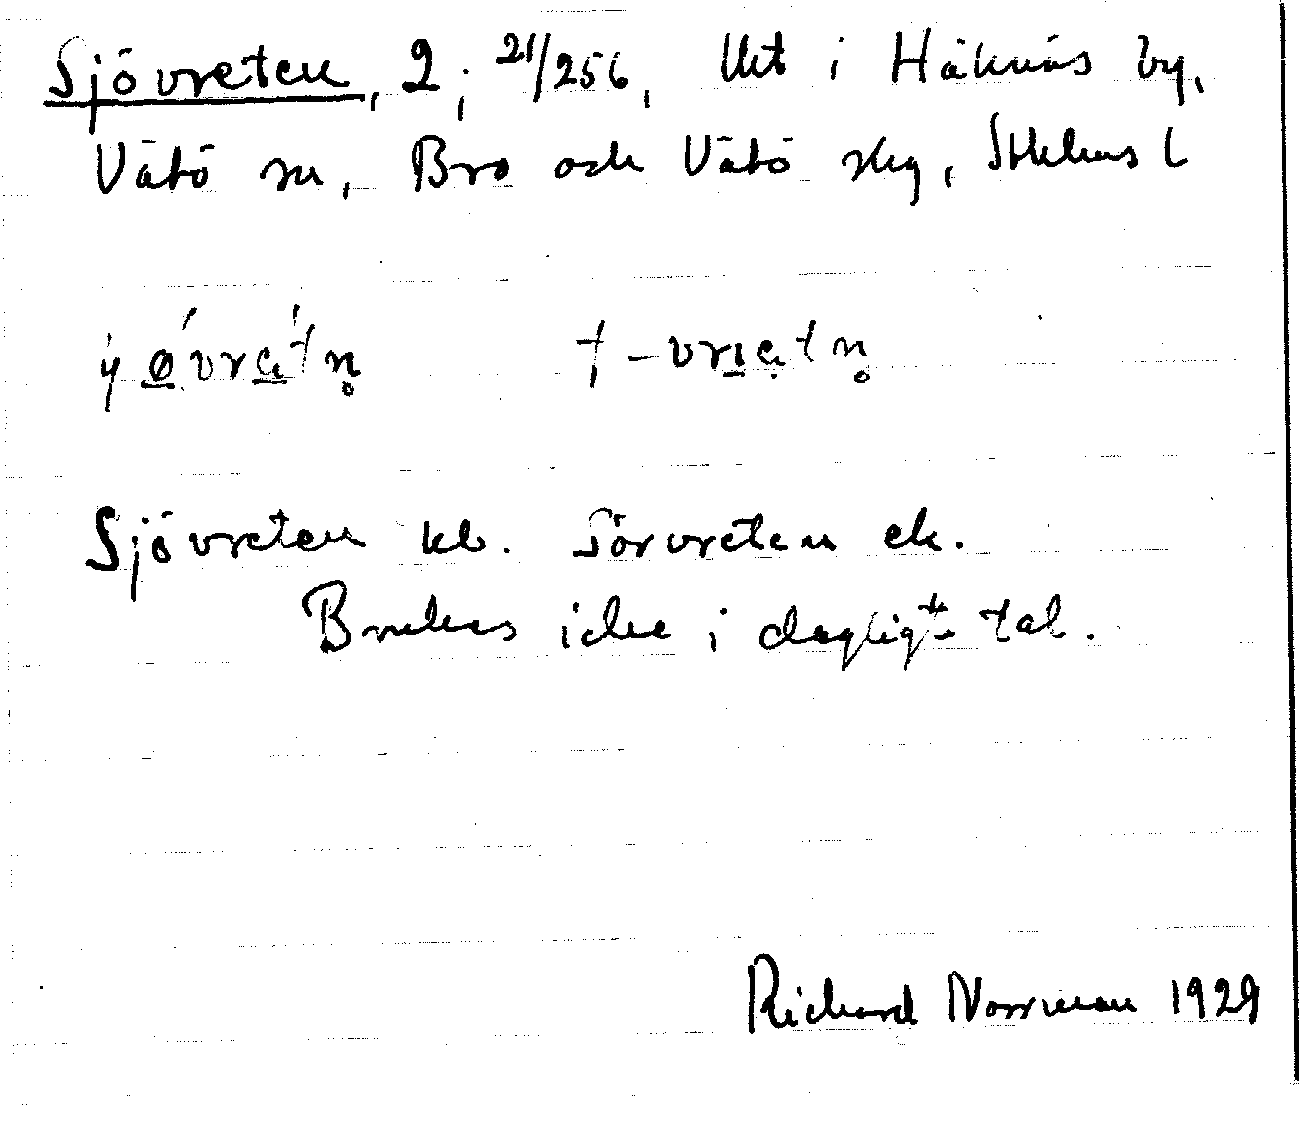 Sjövreten, 2; 21/256, Ult i Håknäs by,
Vätö sn, Bro och Vätö skg, Sthlms l
Sjövreten kb. Sörvreten ek.
Brukas icke i dagligt tal.
Richard Norrman 1929